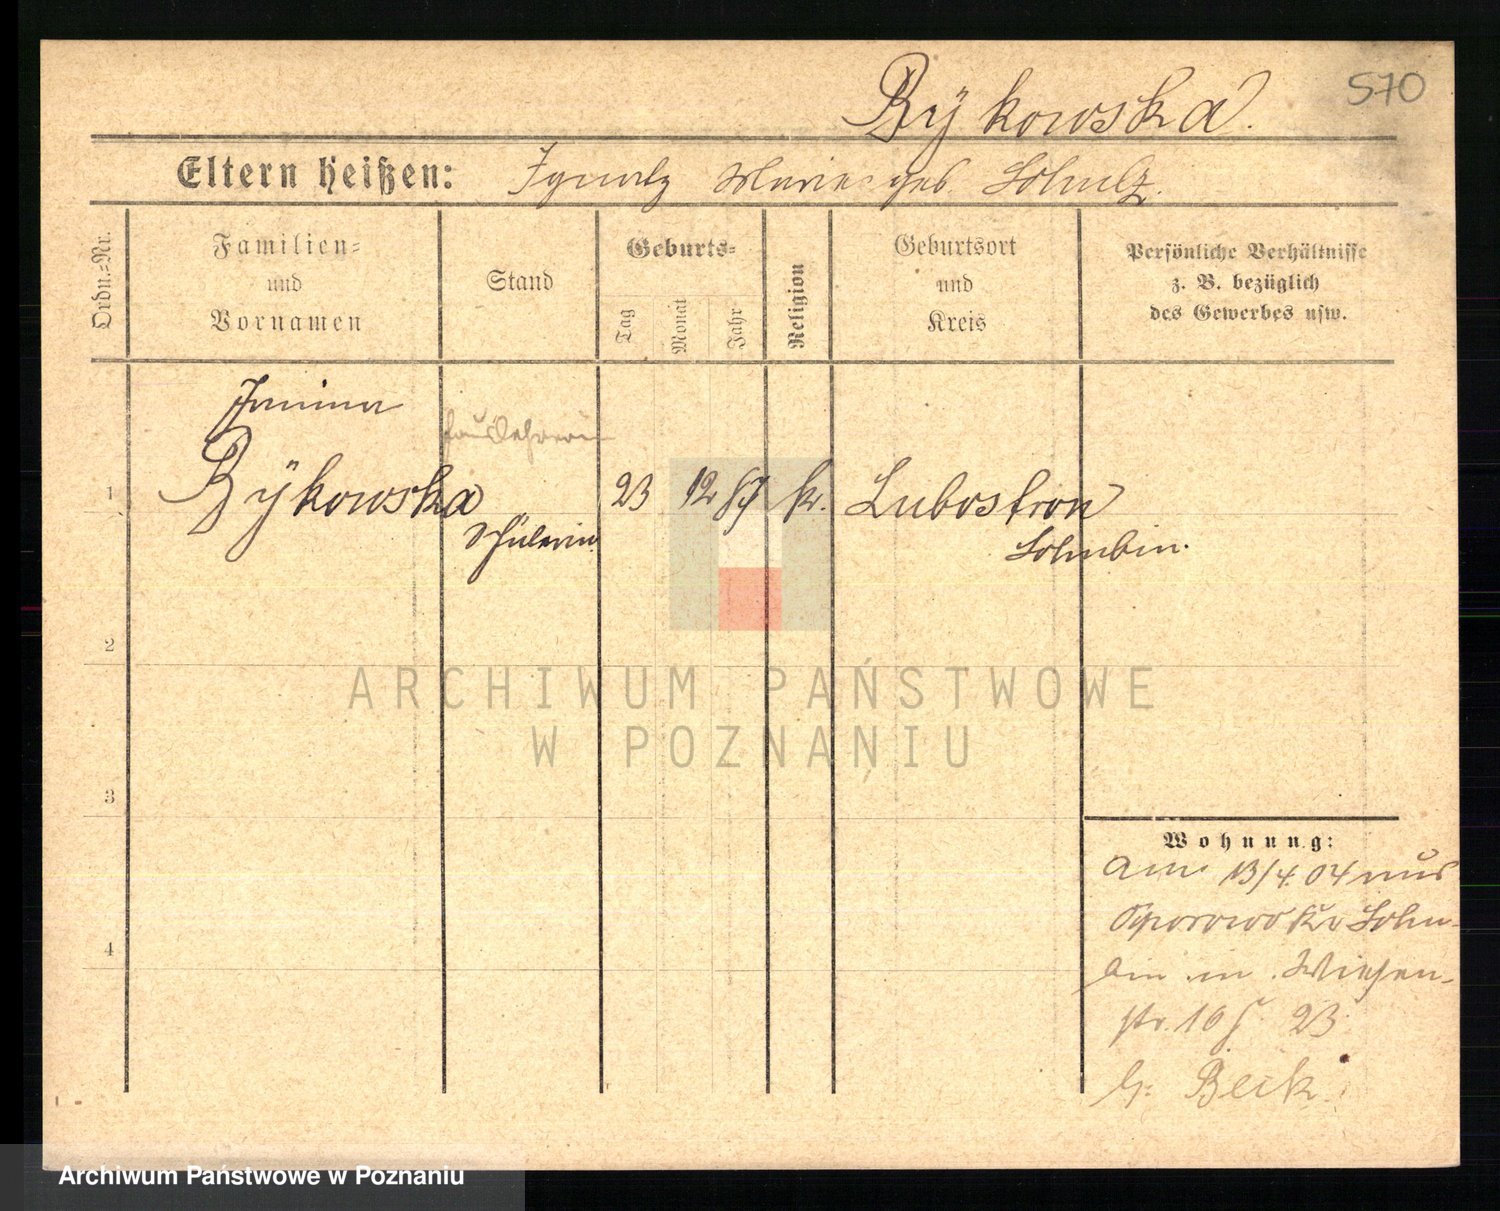 570
Bÿkowska.
Eltern heißen: Ignatz Marie geb. Schulz.
Ordn.=Nr.
Familien=
und
Vornamen
Stand
Geburts=
Tag
Monat
Jahr
Religion
Geburtsort
und
Kreis
Persönliche Verhältnisse
z. B. bezüglich
des Gewerbes usw.
Janina
Hauslehrerin
1 Bÿkowska 23 12 87 k. Lubostron
Schülerin Schubin.
2
ARCHIWUM PAŃSTWOWE
W POZNANIU
3
Wohnung:
13/4. 04 aus
Schu-
4
bin in Wiesen-
str. 16 23
b: Beik
Archiwum Państwowe w Poznaniu